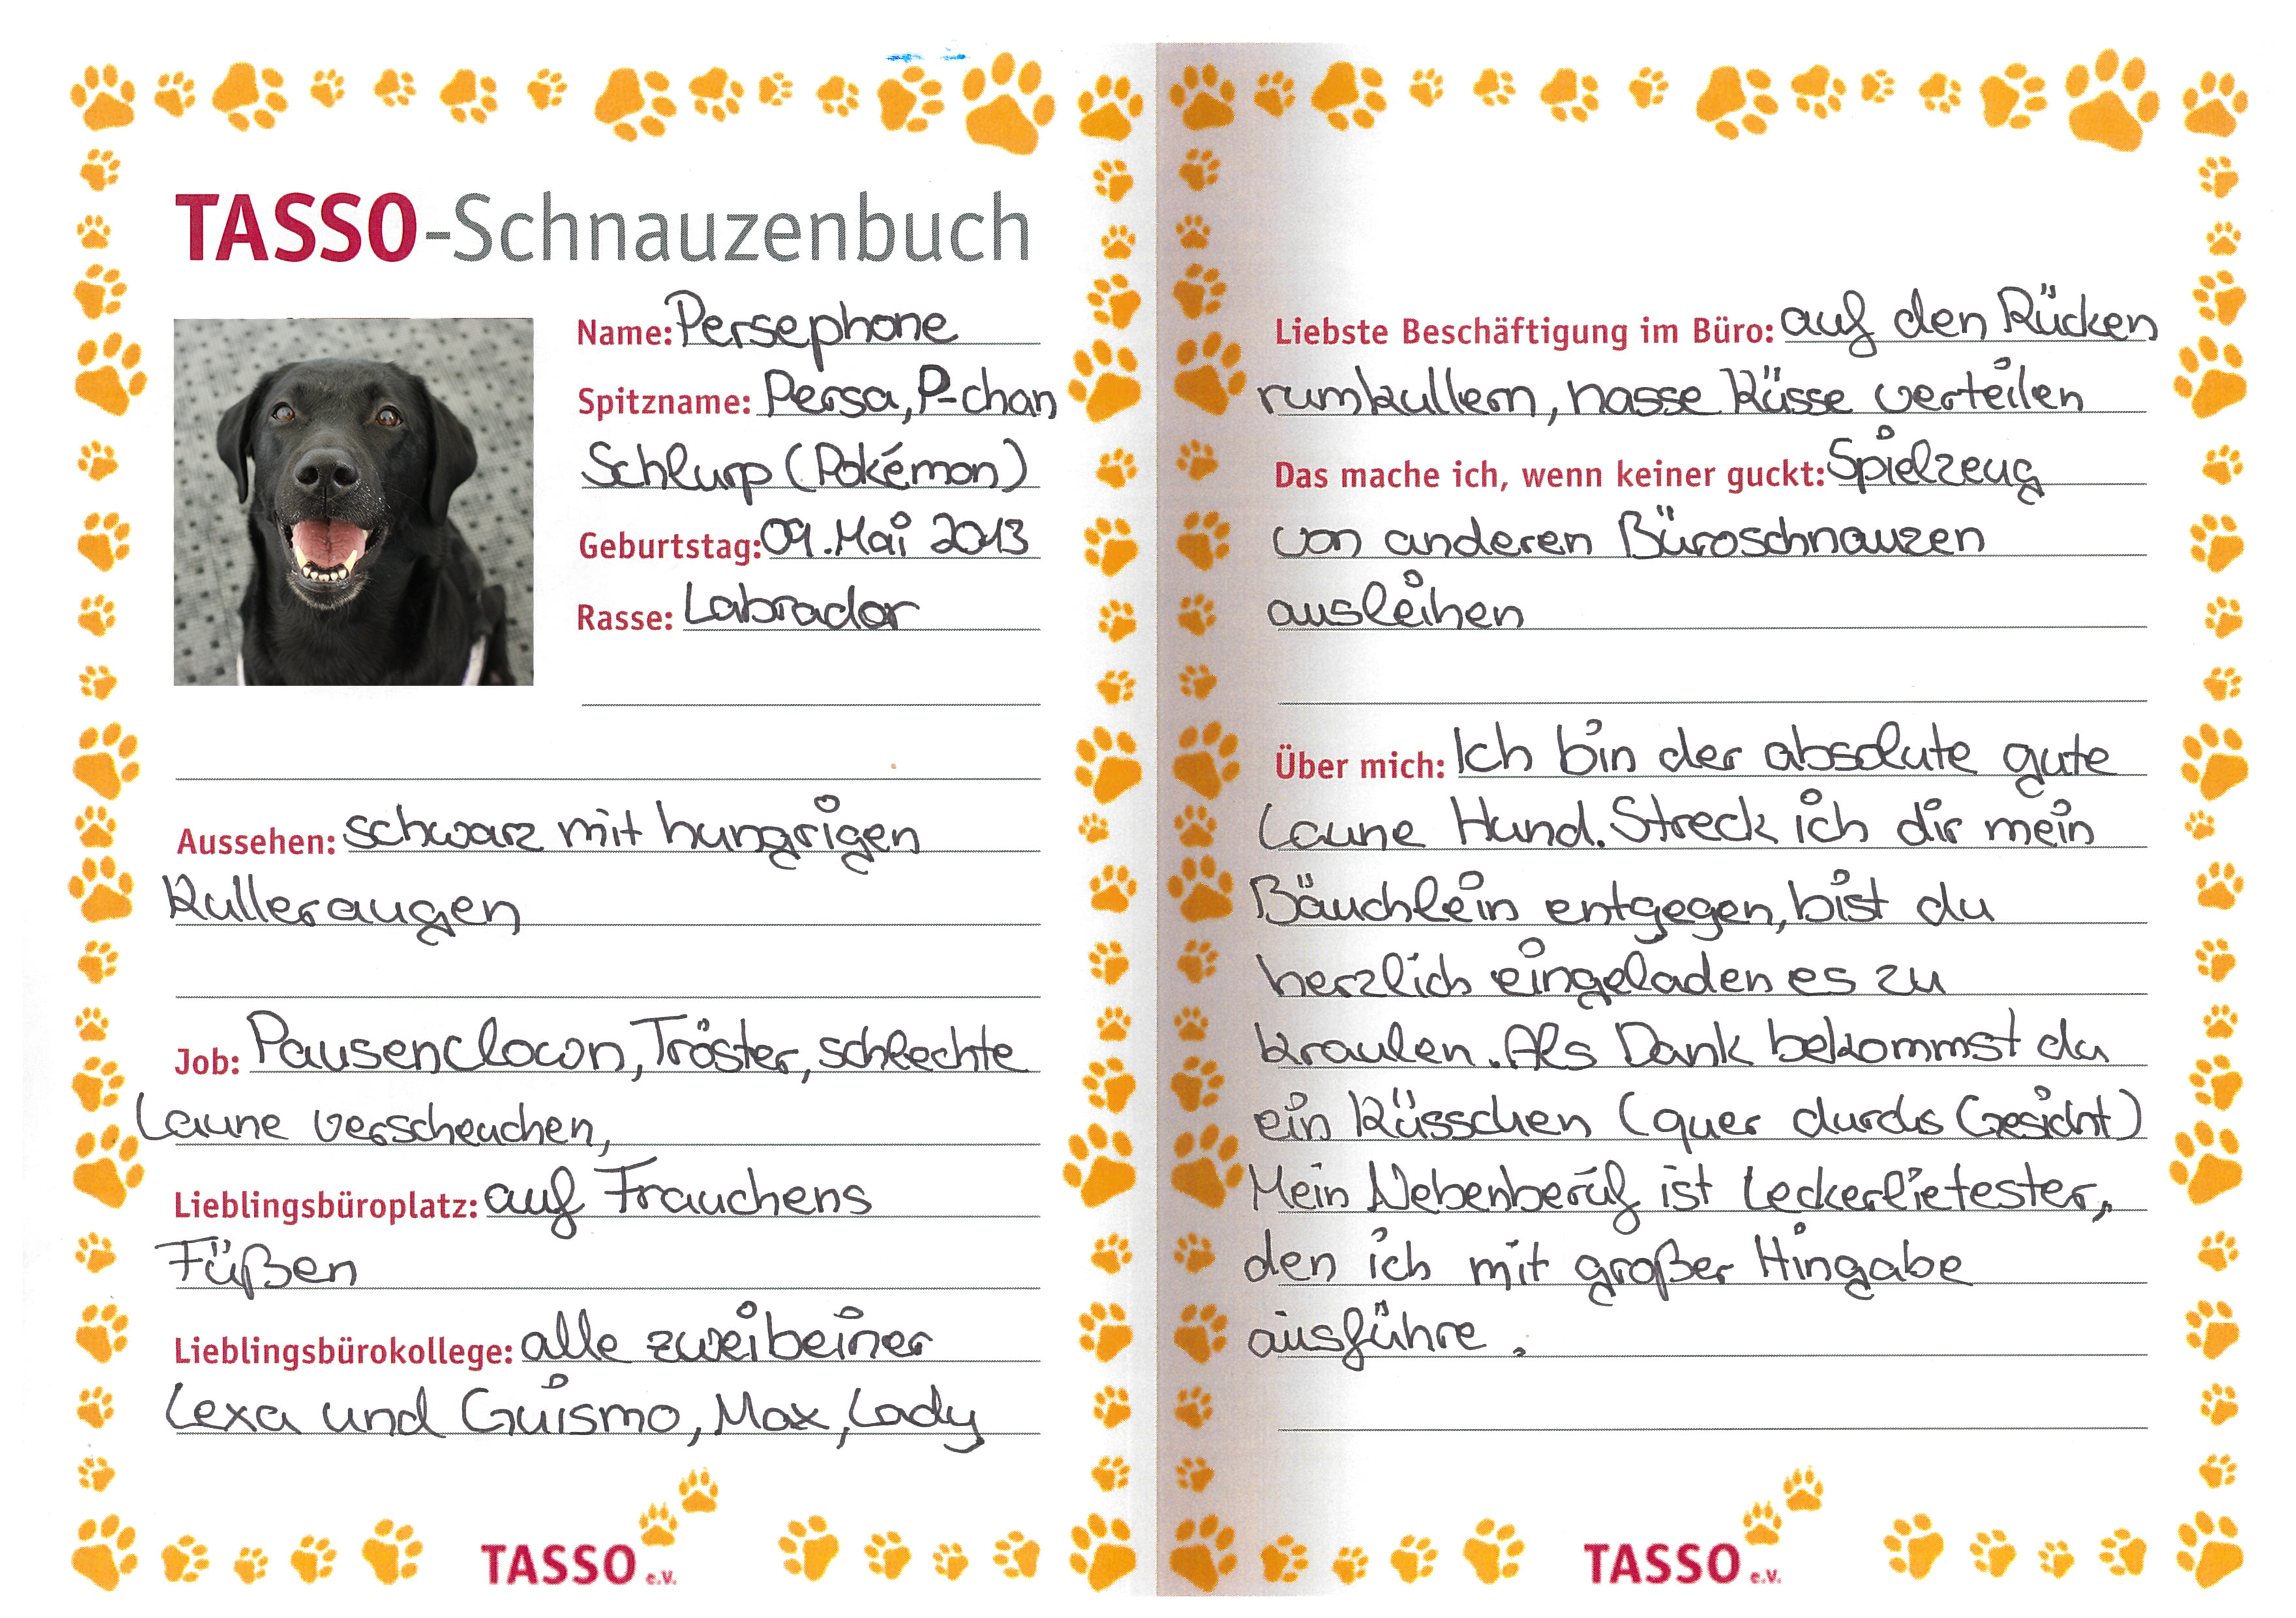 TASSO-Schnauzenbuch
Name: Persephone
Spitzname: Persa, P-chan
Schlurp (Pokémon)
Geburtstag: 09. Mai 2013
Rasse: Labrador
Aussehen: schwarz mit hungrigen
Kulleraugen
Job: Pausenclown, Tröster, schlechte
Laune verscheuchen,
Lieblingsbüroplatz: auf Frauchens
Füßen
Lieblingsbürokollege: alle zweibeiner
Lexa und Guismo, Max, Lady
TASSO e.V.
Liebste Beschäftigung im Büro: auf den Rücken
rumkullern, nasse Küsse verteilen
Das mache ich, wenn keiner guckt: Spielzeug
von anderen Büroschnauzen
ausleihen
Über mich: Ich bin der absolute gute
Laune Hund. Streck ich dir mein
Bäuchlein entgegen, bist du
herzlich eingeladen es zu
kraulen. Als Dank bekommst du
ein Küsschen (quer durchs Gesicht)
Mein Nebenberuf ist Leckerlietester,
den ich mit großer Hingabe
ausführe.
TASSO e.V.